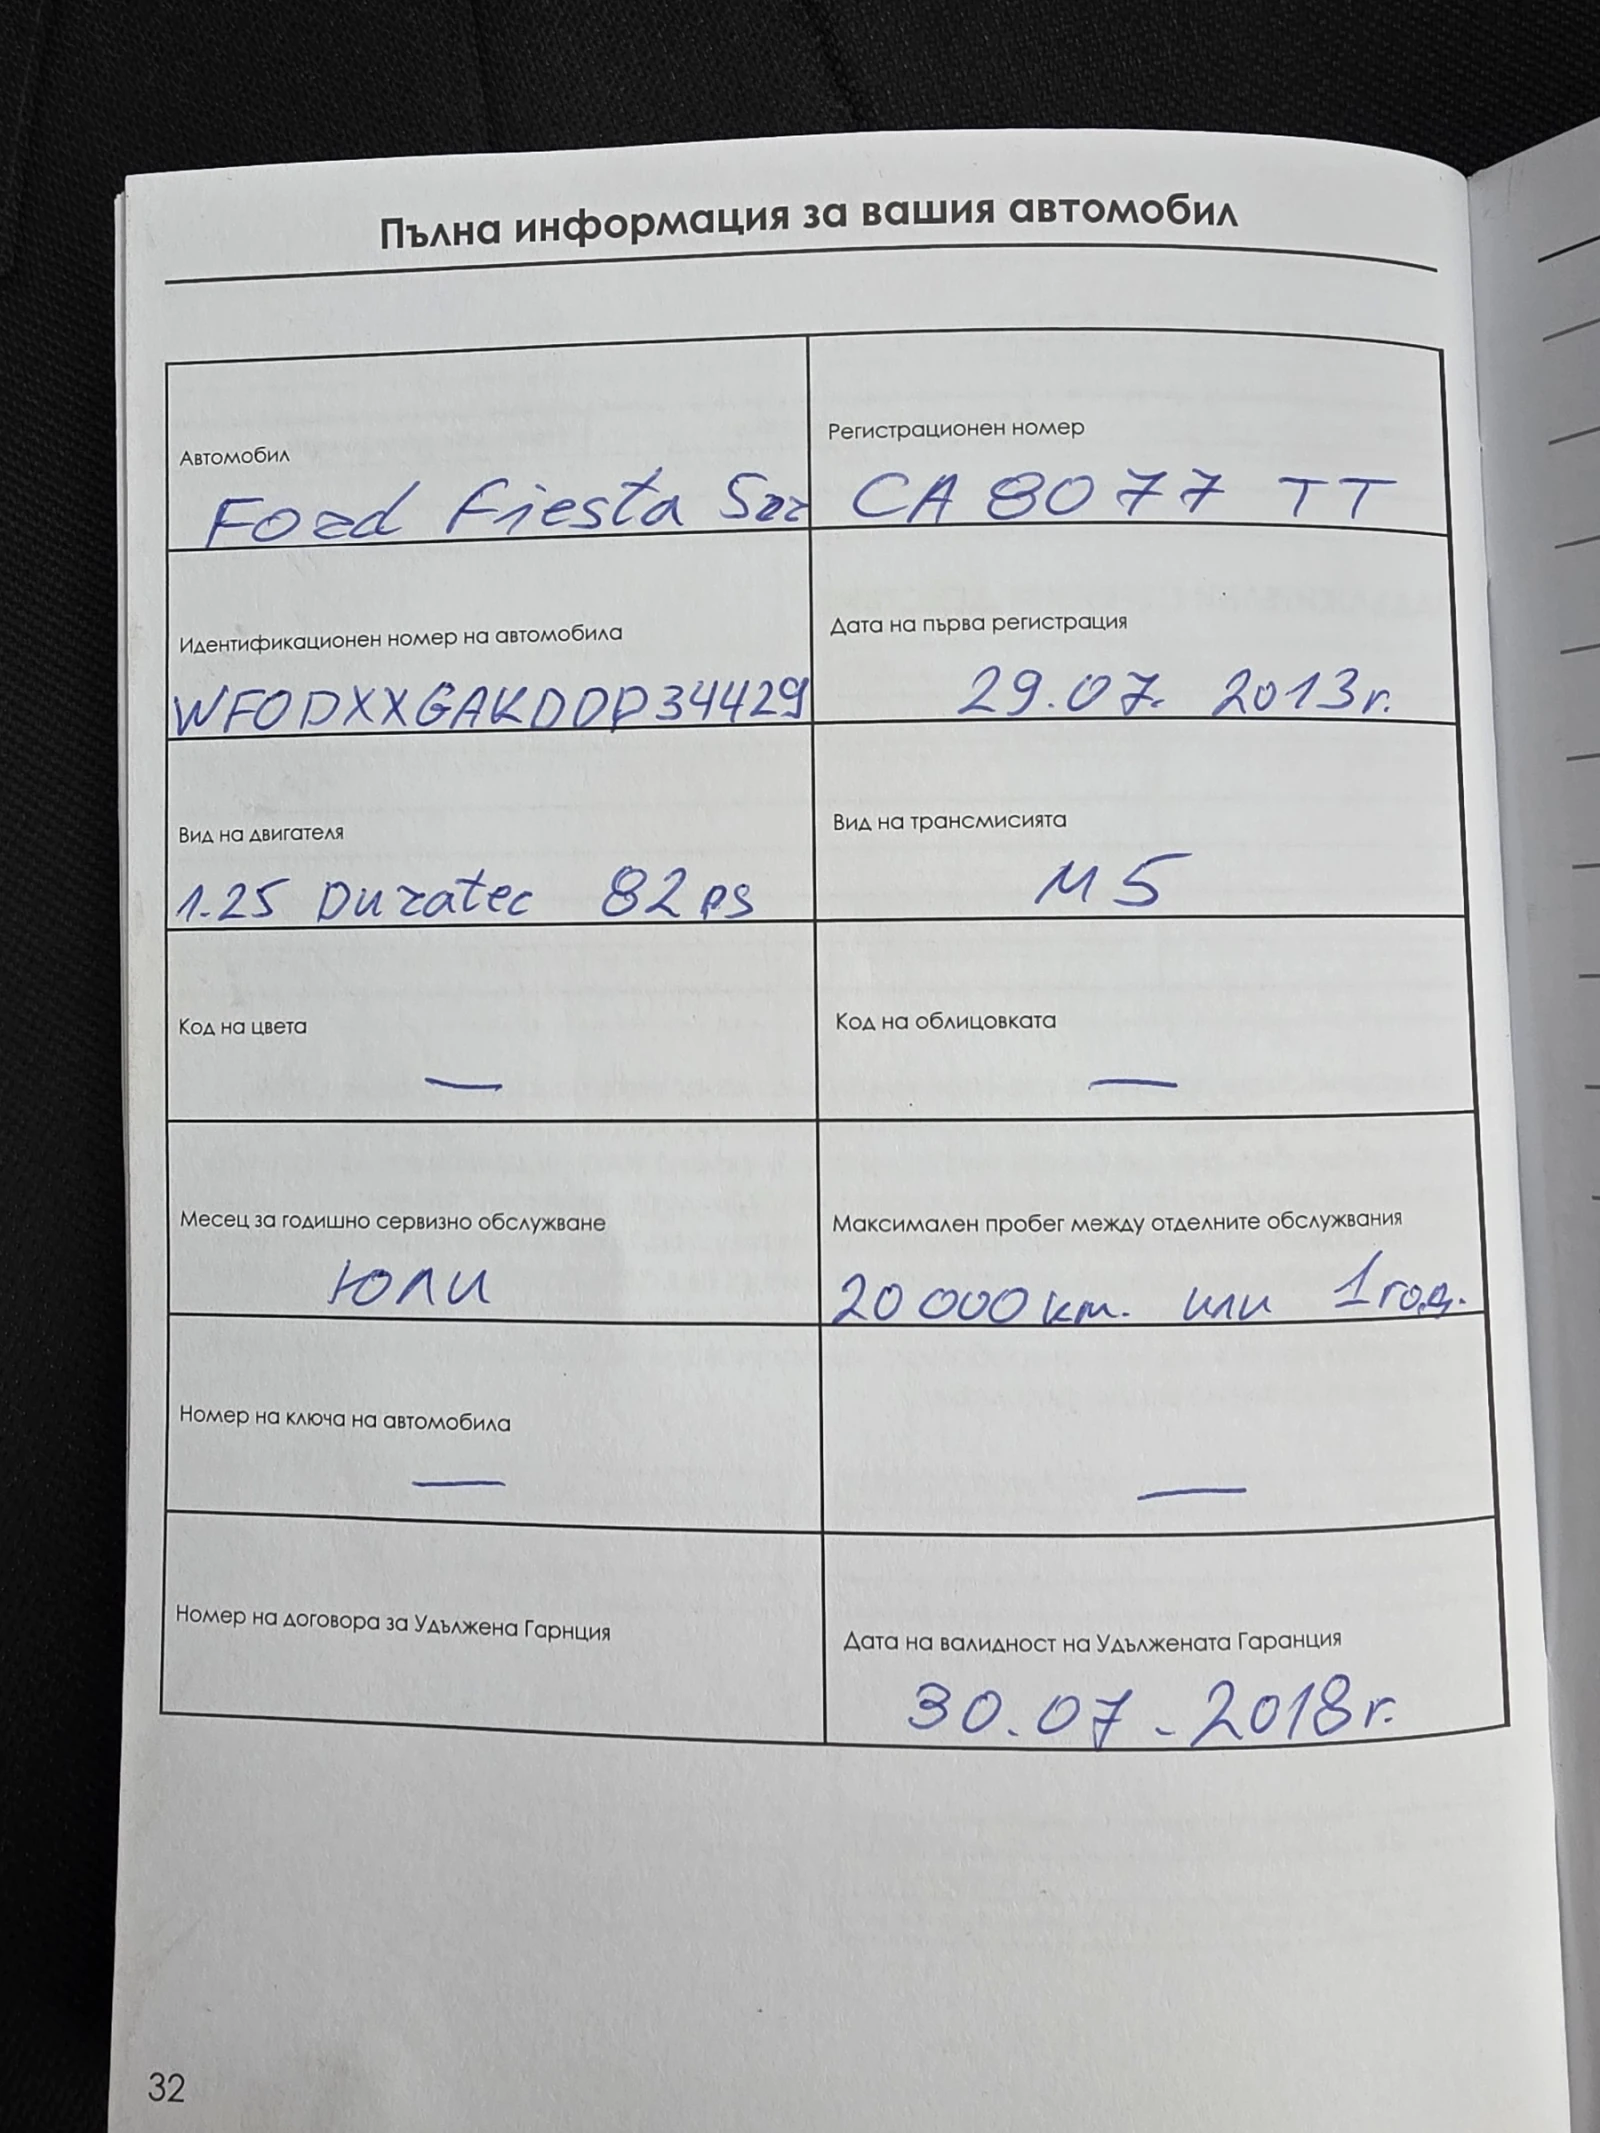 Пълна информация за вашия автомобил
Автомобил
Ford Fiesta 5zz
Регистрационен номер
CA 8077 TT
Идентификационен номер на автомобила
WF0DXXGAKDDD34429
Дата на първа регистрация
29.07. 2013г.
Вид на двигателя
1.25 Duratec 82 ps
Вид на трансмисията
M5
Код на цвета
—
Код на облицовката
—
Месец за годишно сервизно обслужване
Юли
Максимален пробег между отделните обслужвания
20 000 км. или 1 год.
Номер на ключа на автомобила
—
—
Номер на договора за Удължена Гарнция
Дата на валидност на Удължената Гаранция
30.07.2018г.
32